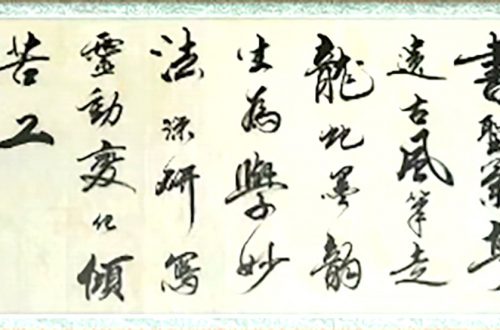 書聖
遺古風筆走
龍蛇墨韻
生為學妙
法深研寫
靈動變化傾
苦工